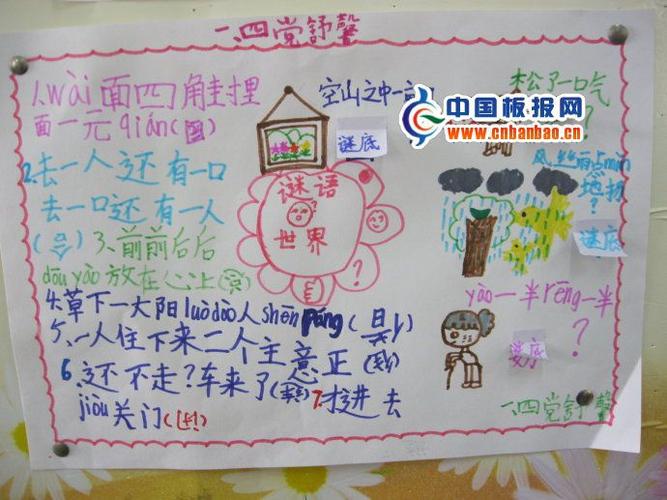 一.四党舒馨
1.wài面四角埋
面一元qián(圆)
2.去一人还有一口
去一口还有一人
3.前前后后
dōu yào放在心上
4.草下一大阳luò dào人shēn páng
5.一人住下来二个主意正
6.还不走?车来了
7.才进去
jiòu关门
谜语
世界
?
空山之中一
谜底
中国板报网
www.cnbanbao.cn
松了一口气
?
风丝雨点mǐn
?
谜底
yào一半rēng一半
?
谜底
一.四党舒馨